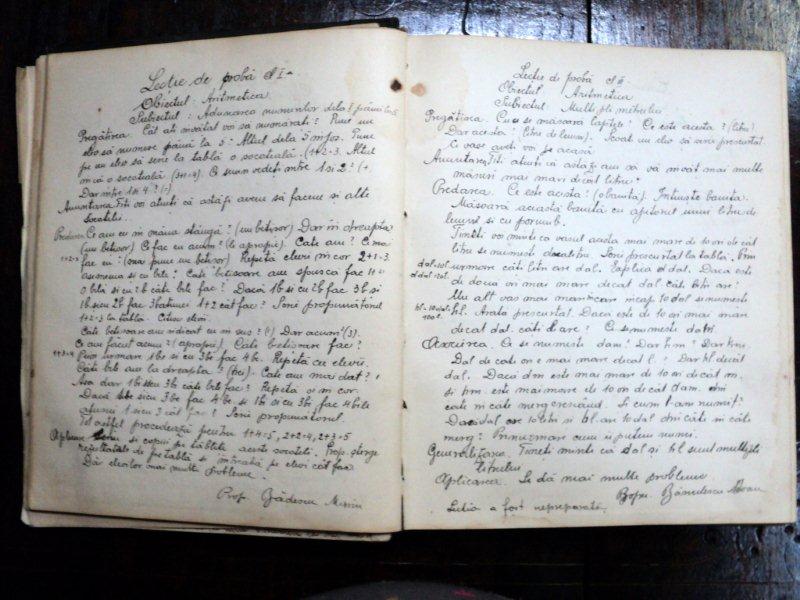 Lecție de probă cl I-a
Obiectul: Aritmetica
Subiectul: Adunarea numerilor dela 1 până la 5
Pregătirea. Cât ați învățat voi să numărați? Pune un
elev să numere până la 5. Altul dela 5 în jos. Pune
pe un elev să scrie la tablă o socoteală. (1+2=3. Altul
încă o socoteală (3+1=4). Ce semn vedeți între 1 și 2? (+.
Dar între 1 și 4? (=)
Anunțarea. Știți voi atunci că astăzi avem să facem și alte
socoteli.
Predarea. Ce am eu în mâna stângă? (un bețișor) Dar în dreapta
(un bețișor) Ce fac eu acum? (le apropii). Câte am? Ce mai
fac eu? (mai pune un bețișor) Repetă elevii în cor 2+1=3.
Asemenea și cu bile. Câte bețișoare am spus că fac 1+
o bilă și cu 2 b câte bile fac? Dacă 1 b și cu 2 b fac 3 b și
1 b și cu 2 b fac 3 b atunci 1+2 cât fac? Scrii propunătorul
1+2=3 la tablă. Citesc elevii.
Câte bețișoare am ridicat eu în sus? (1) Dar acum? (3).
Ce am făcut acum? (apropii). Câte bețișoare fac?
1+3=4 Prin urmare 1 b și cu 3 b fac 4 b. Repetă cu elevii.
Câte bile am la dreapta? (trei). Câte am mai dat?
Așa dar 1 b și cu 3 b câte bile fac? Repetă și în cor
Dacă 1 be și cu 3 be fac 4 be și 1 b și cu 3 b fac 4 bile
atunci 1 și cu 3 cât fac? Scrii propunătorul.
Tot astfel procedează pentru 1+4=5, 2+2=4, 2+3=5
Aplicarea Scriu și copiii pe tăblițe aceste socoteli. Prop. șterge
rezultatele de pe tablă și întreabă pe elevi cât fac
Dă elevilor mai multe probleme.
Prop. Bădescu
Lecție de probă cl II
Obiectul Aritmetica
Subiectul: Multiplii metrului
Pregătirea. Cu ce se măsoară laptele? Ce este acesta? (litru)
Dar acesta? (litru de lemn). Scoat un elev să scrie prescurtat
Ce vase aveți voi pe acasă
Anunțarea. Știți atunci că astăzi am să vă învăț mai multe
măsuri mai mari decât litrul.
Predarea. Ce este acesta? (o baniță). Intuește banița.
Măsoară această baniță cu ajutorul unui litru de
lemn și cu porumb.
Țineți voi minte că vasul acesta mai mare de 10 ori de cât
litru se numește decalitru. Scrii prescurtat la tablă. Prin
urmare câți litri are dal. Explică dl dal. Dacă este
de două ori mai mare decât dal. câți litri are?
Un alt vas mai mare în care încap 10 dal se numește
hl=10 dal=100 l. hl. Arată prescurtat. Dacă este de 10 ori mai mare
decât dal. câți l are? Ce se numește dal
Asocierea. Ce se numește dam? Dar hm? Dar km.
Dal de câte ori e mai mare decât l? Dar hl decât
dal. Dacă dm este mai mare de 10 ori decât m.
și hm. este mai mare de 10 ori decât dam. din
câte în câte merg crescând. Și cum l-am numit?
Dacă dal are 10 litri și hl are 10 dal din câte în câte
merg? Prin urmare cum îi putem numi.
Generalizare. Țineți minte că dal și hl sunt multiplii
litrului
Aplicarea. Se dă mai multe probleme
Prop. Bănulescu
Lecția a fost nepreparată.